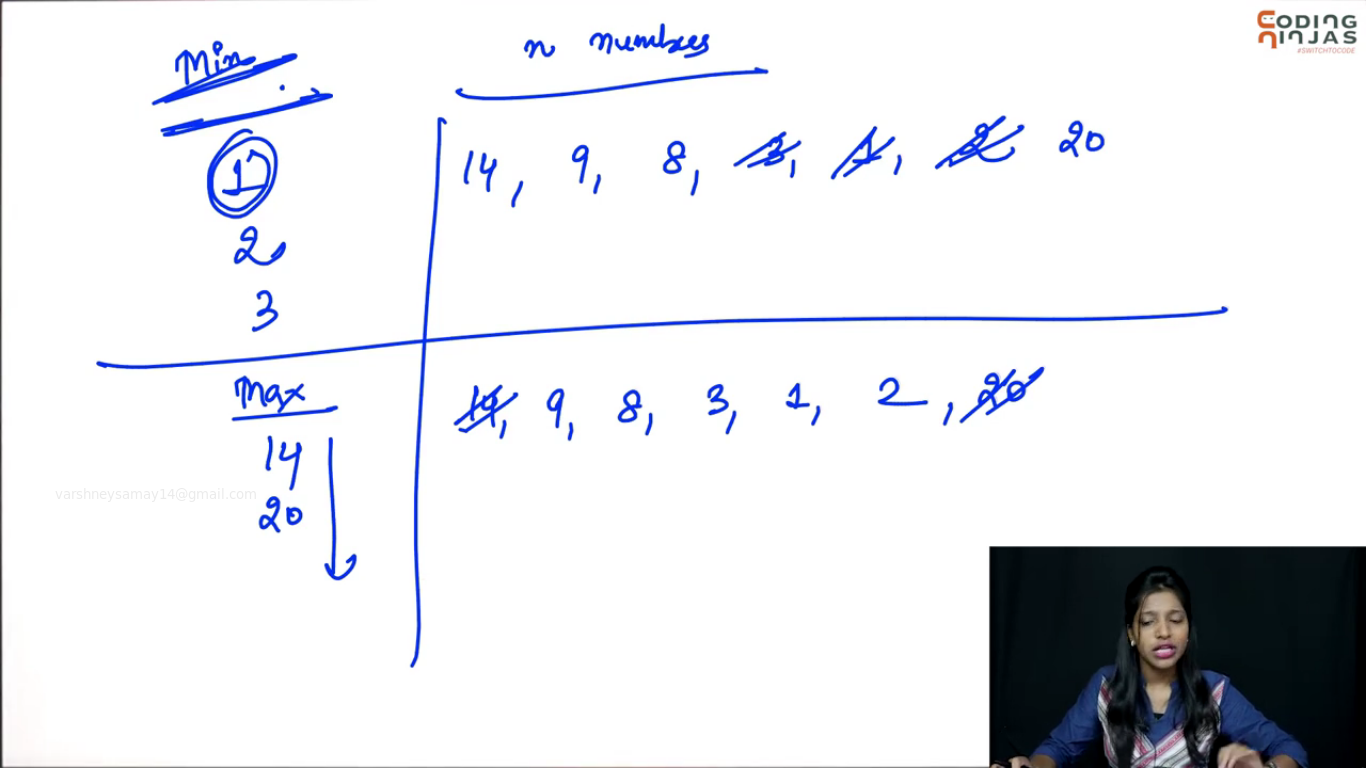 CODING
NINJAS
#SWITCHTOCODE
Min
n numbers
1
14, 9, 8, 3, 1, 2, 20
2
3
Max
14, 9, 8, 3, 1, 2, 20
14
20
varshneysamay14@gmail.com